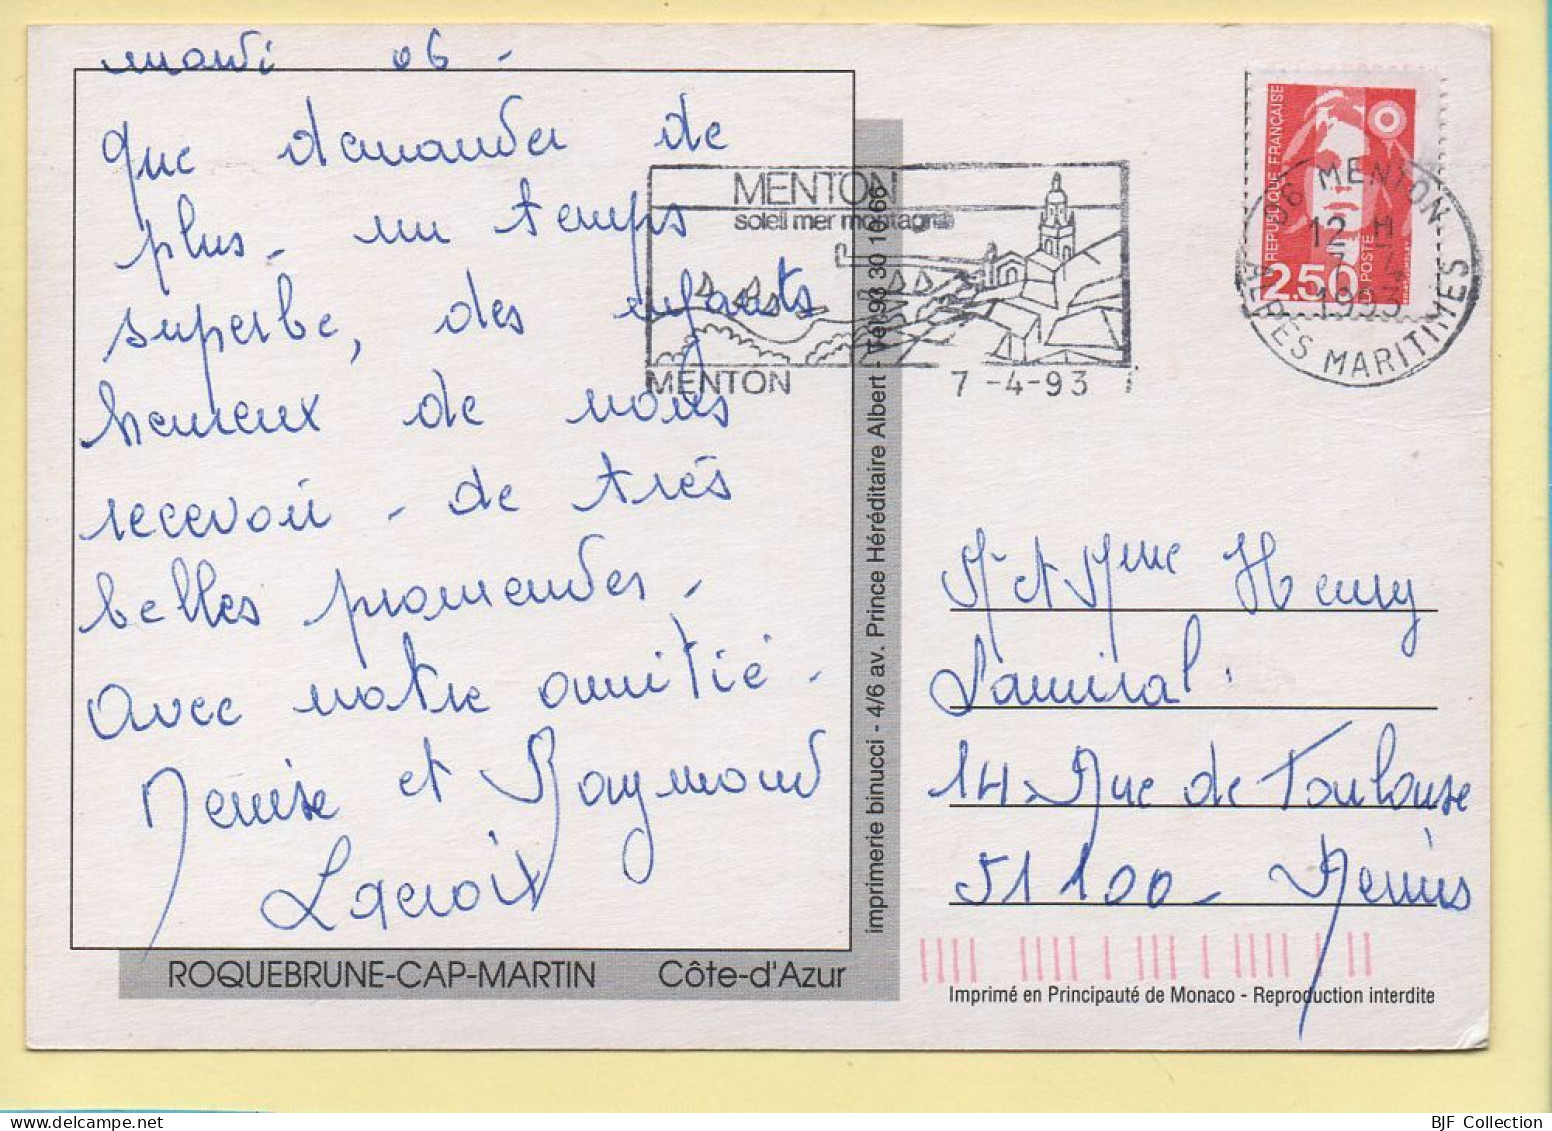 mardi 06 -
Que demander de
plus - un temps
superbe, des enfants
heureux de nous
recevoir - de très
belles promenades -
Avec notre amitié -
Denise et Raymond
Lacroix
ROQUEBRUNE-CAP-MARTIN Côte-d'Azur
imprimerie binucci - 4/6 av. Prince Héréditaire Albert - Tél. 93 30 10 66
MENTON
soleil mer montagne
MENTON 7-4-93
RÉPUBLIQUE FRANÇAISE
2.50 LA POSTE
06 MENTON
12 H
7-4
1993
ALPES MARITIMES
Mr et Mme Henry
Lamiral
14 Rue de Toulouse
51100 - Reims
Imprimé en Principauté de Monaco - Reproduction interdite
BJF Collection